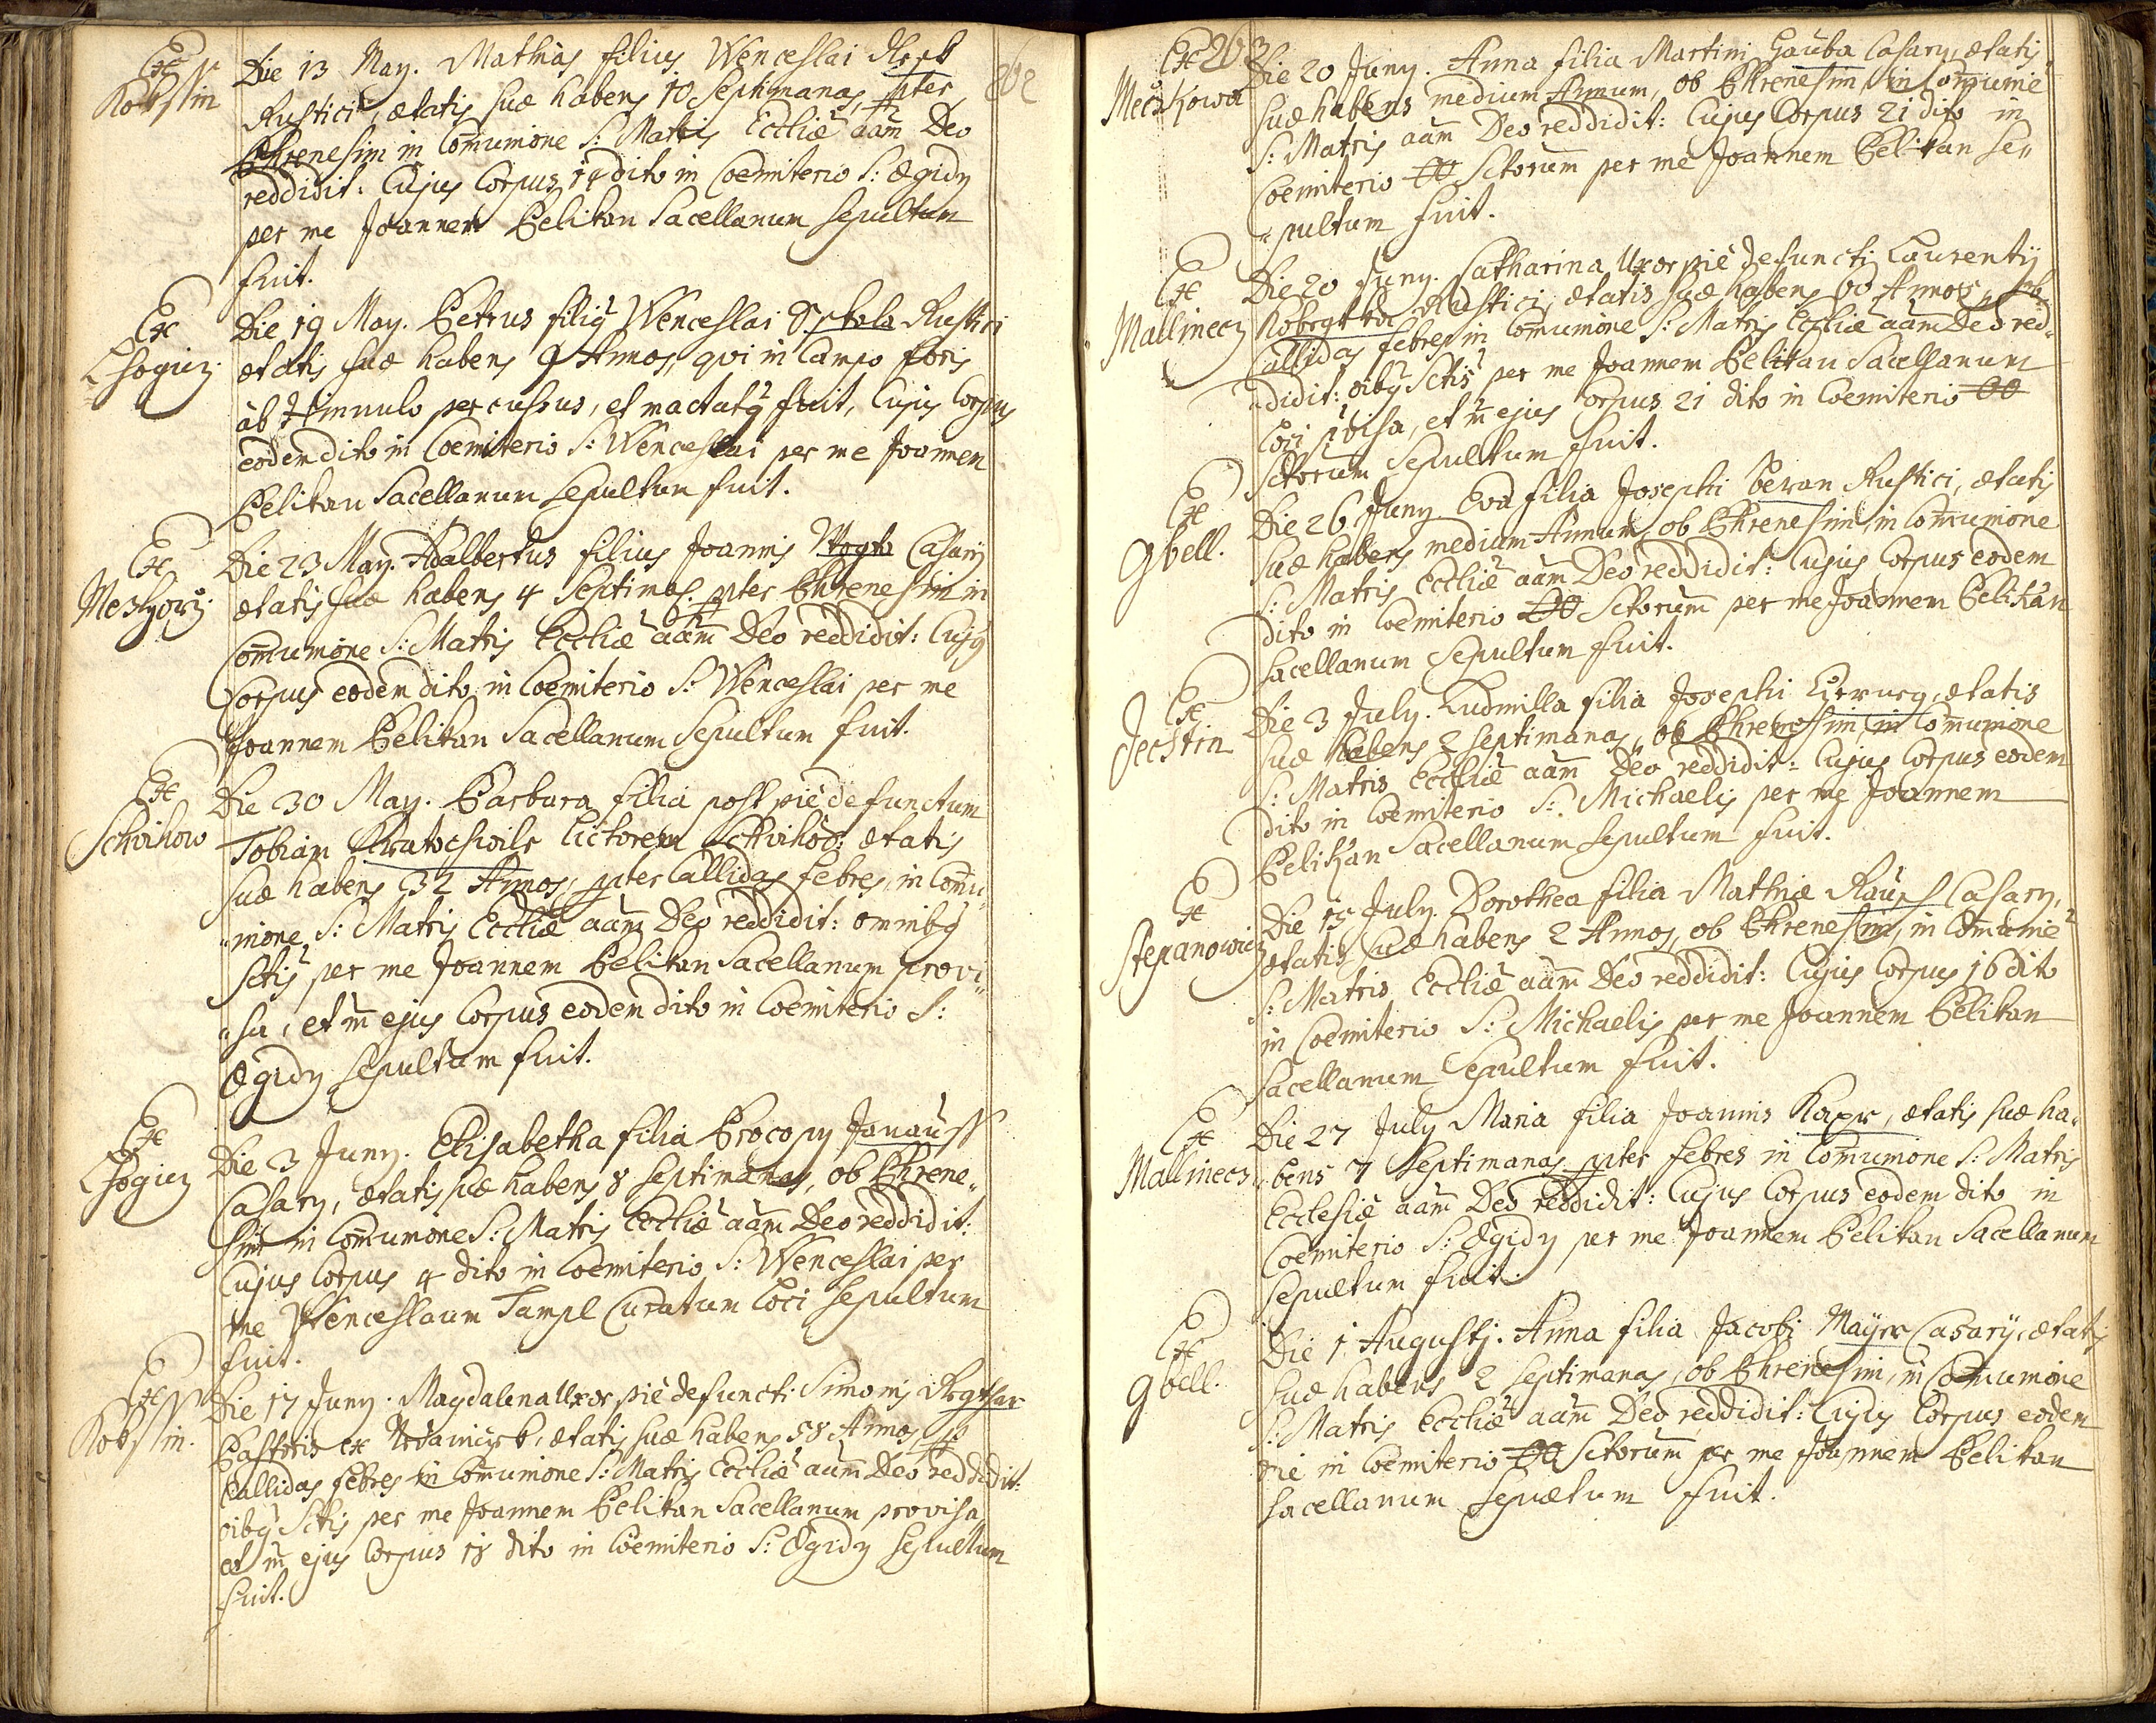 202
Ex
Kobssin
Die 13 May. Mathias filius Wenceslai
Rustici, ætatis suæ habens 10 Septimanas, pter
Phrenesim in Comunione S: Matris Eccliæ aam Deo
reddidit: Cujus Corpus 14 dito in Coemiterio S: Ægidy
per me Joannem Pelikan Sacellanum sepultum
fuit.
Ex
Die 19 May. Petrus filiy Wenceslai Rustici
ætatis suæ habens 9 Annos, qui in Campo foris
ab Hinnulo percussus, et mactaty fuit, Cujus Corpus
eodem dito in Coemiterio S: Wenceslai per me Joannem
Pelikan Sacellanum sepultum fuit.
Ex
Meskhory
Die 23 May. Adalbertus filius Joannis Casary
ætatis suæ habens 4 Septimas. pter Phrenesim in
Comunione S: Matris Eccliæ aam Deo reddidit: Cujy
Corpus eodem dito, in Coemiterio S: Wenceslai per me
Joannem Pelikan Sacellanum Sepultum fuit.
Ex
Schwihow
Die 30 May. Barbara filia post pie defunctum
Tobiam Kratochwile lictorem Schwihov: ætatis
suæ habens 32 Annos, pter Callidas febres, in Comu„
„nione S: Matris Eccliæ aam Deo reddidit: omniby
Sctis per me Joannem Pelikan Sacellanum provi„
„sa, et m ejus Corpus eodem dito in Coemiterio S:
Ægidy sepultum fuit.
Ex
Die 3 Juny. Elisabetha filia Procopy Janauss
Casary, ætatis suæ habens 8 septimanas, ob Phrene„
sim in Comunione S: Matris Eccliæ aam Deo reddidit:
Cujus Corpus 4 dito in Coemiterio S: Wenceslai per
me Wenceslaum Tampl Curatum loci sepultum
fuit.
Ex
Kobssin.
Die 17 Juny. Magdalena Uxor pie defuncti Simonis
Pastoris ex ætatis suæ habens 58 Annos
Callidas febres in Comunione S: Matris Eccliæ aam Deo reddidit:
oiby Sctis per me Joannem Pelikan Sacellanum provisa,
et m ejus Corpus 18 dito in Coemiterio S: Ægidy sepultum
fuit.
203
Ex
Meczkowa
Die 20 Juny. Anna filia Martini Gauba Casary, ætatis
suæ habens medium Annum, ob Phrenesim in Comunie
S: Matris aam Deo reddidit: Cujus Corpus 21 dito in
Coemiterio OO Sctorum per me Joannem Pelikan Se„
„pultum fuit.
Ex
Mallinecz
Die 20 Juny. Catharina Uxor pie defuncti Laurentij
Rustici, ætatis suæ habens 60 Annos, ob
Callidas febres in Comunione S: Matris Eccliæ aam Deo red„
„didit: oiby Sctis per me Joannem Pelikan Sacellanum
loci pvisa, et m ejus Corpus 21 dito in Coemiterio OO
Sctorum Sepultum fuit.
Ex
Gbell.
Die 26 Juny Eva filia Josephi Beran Rustici, ætatis
suæ habens medium Annum, ob Phrenesim, in Comunione
S: Matris Eccliæ aam Deo reddidit: Cujus Corpus eodem
dito in Coemiterio OO Sctorum per me Joannem Pelikan
Sacellanum sepultum fuit.
Ex
Jecstin
Die 3 July. Ludmilla filia Josephi Cirurg, ætatis
suæ habens 2 septimanas, ob Phrenesim in Comunione
S: Matris Eccliæ aam Deo reddidit: Cujus Corpus eodem
dito in Coemiterio S: Michaelis per me Joannem
Pelikan Sacellanum sepultum fuit.
Ex
Stepanowicz
Die 15 July. Dorothea filia Mathiæ Casary,
ætatis suæ habens 2 Annos, ob Phrenesim, in Comunie
S: Matris Eccliæ aam Deo reddidit: Cujus Corpus 16 dito
in Coemiterio S: Michaelis per me Joannem Pelikan
Sacellanum Sepultum fuit.
Ex
Mallinecz
Die 27 July Maria filia Joannis Kapr, ætatis suæ ha„
„bens 7 Septimanas pter febres in Comunione S: Matris
Ecclesiæ aam Deo reddidit: Cujus Corpus eodem dito in
Coemiterio S: Ægidy per me Joannem Pelikan Sacellanum
Sepultum fuit.
Ex
Gbell.
Die 1 Augusti. Anna filia Jacobi Mayer Casary, ætatis
suæ habens 2 septimanas, ob Phrenesim, in Comunione
S: Matris Eccliæ aam Deo reddidit: Cujus Corpus eodem
die in Coemiterio OO Sctorum per me Joannem Pelikan
Sacellanum sepultum fuit.